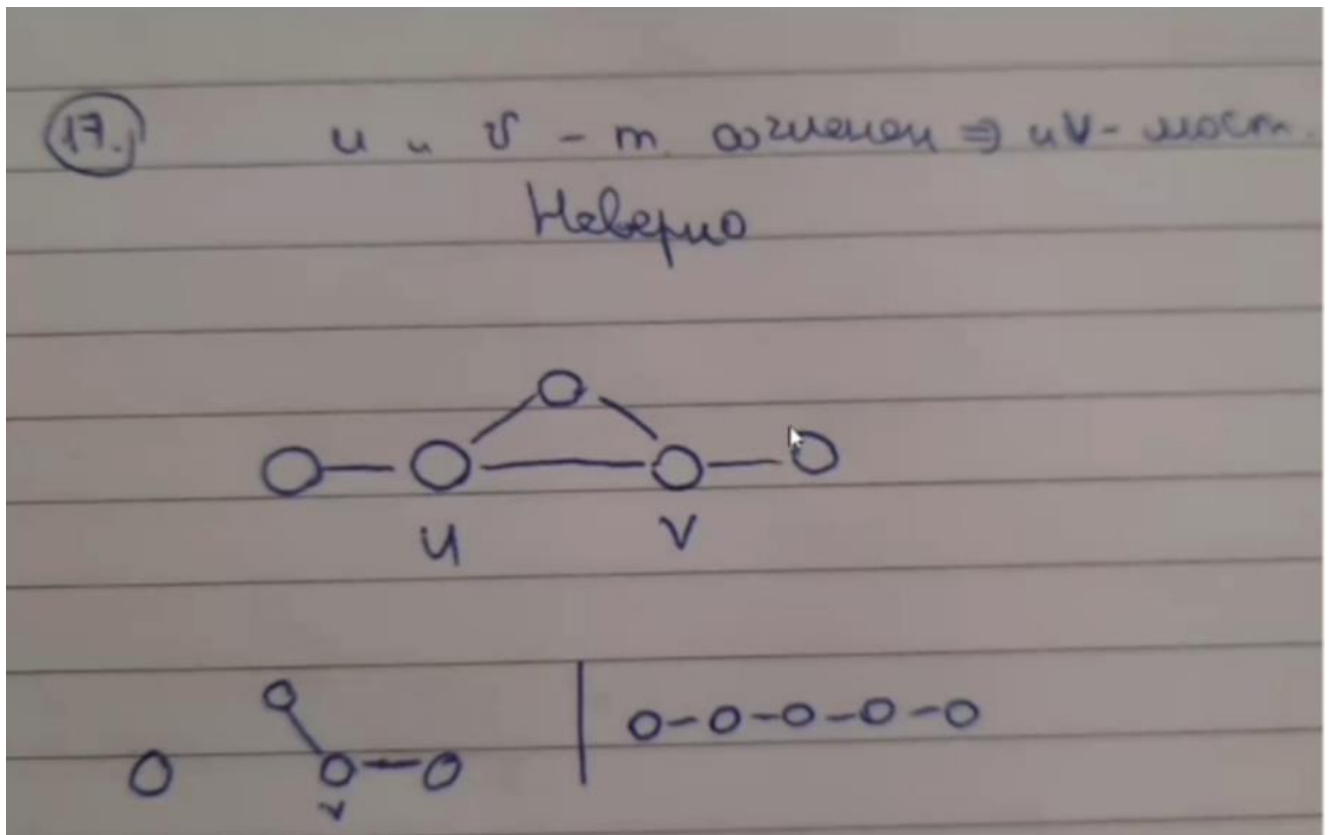 17.) u и v - т. сочленен ⇒ uv - мост.
Неверно
u v
v